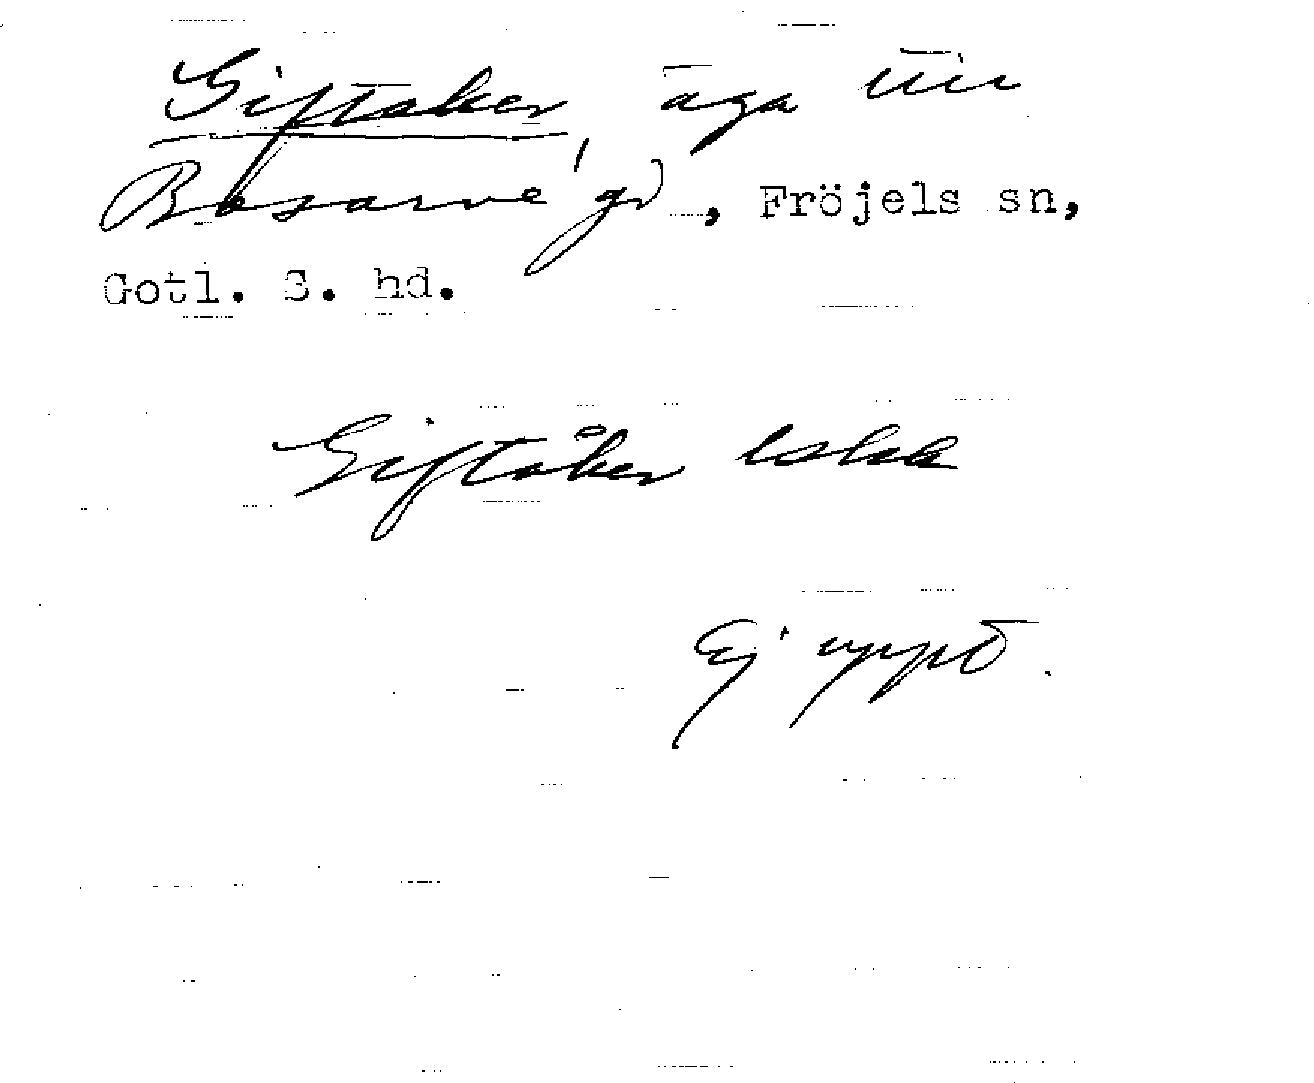 Giftaker, äga till
Bosarve gd, Fröjels sn,
Gotl. S. hd.
Giftåker EsKK
Ej uppt.